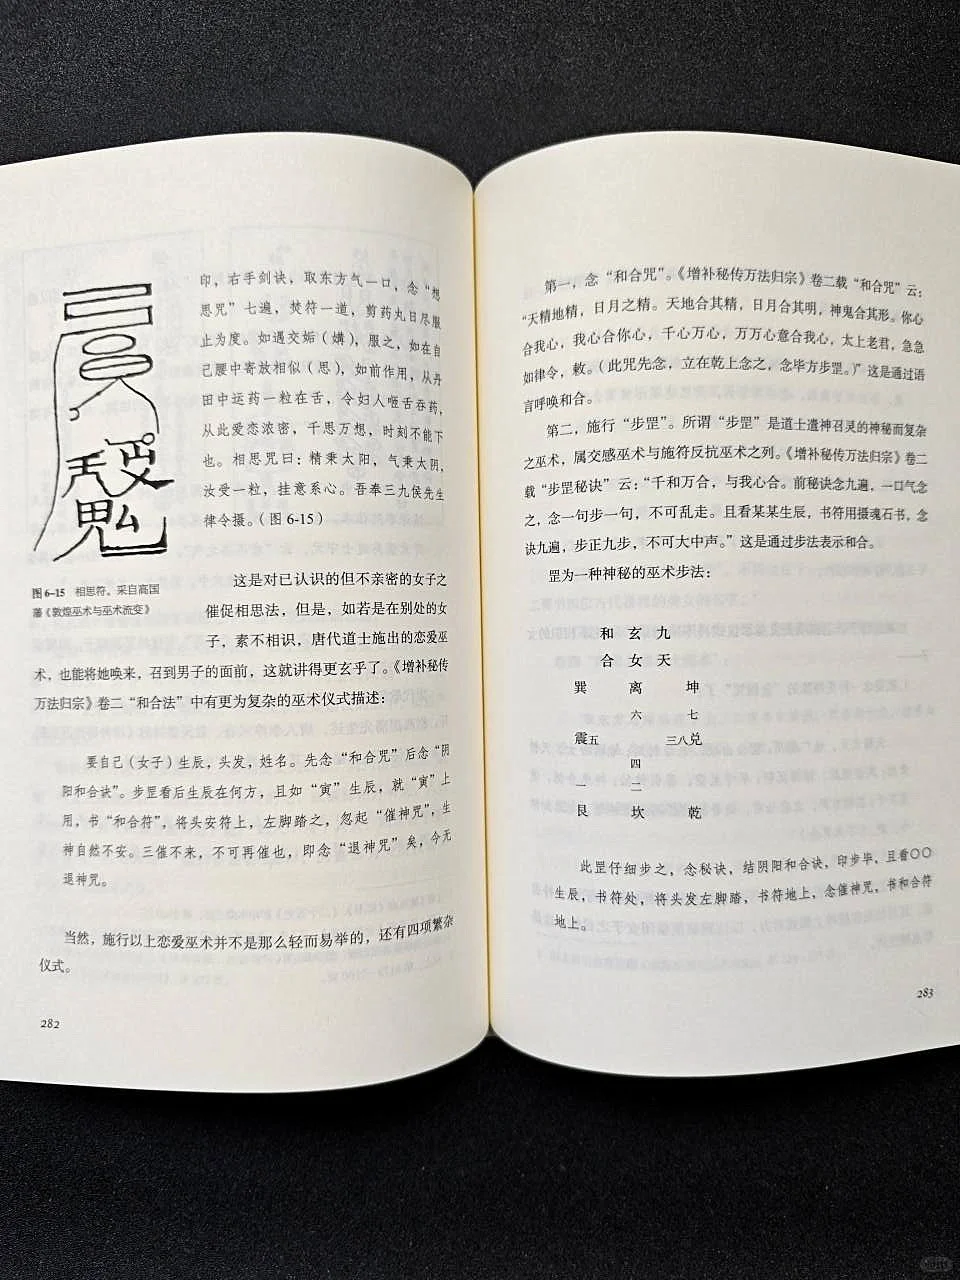 印，右手剑诀，取东方气一口，念“想
思咒”七遍，焚符一道，剪药丸日尽服
止为度。如遇交姤（媾），服之，如在自
己腰中寄放相似（思），如前作用，从丹
田中运药一粒在舌，令妇人咂舌吞药，
从此爱恋浓密，千思万想，时刻不能下
也。相思咒曰：精乘太阳，气乘太阴，
汝受一粒，挂意系心。吾奉三九侯先生
律令摄。（图 6-15）
图 6-15 相思符。采自高国
藩《敦煌巫术与巫术流变》
这是对已认识的但不亲密的女子之
催促相思法，但是，如若是在别处的女
子，素不相识，唐代道士施出的恋爱巫
术，也能将她唤来，召到男子的面前，这就讲得更玄乎了。《增补秘传
万法归宗》卷二“和合法”中有更为复杂的巫术仪式描述：
要自己（女子）生辰，头发，姓名。先念“和合咒”后念“阴
阳和合诀”。步罡看后生辰在何方，且如“寅”生辰，就“寅”上
用，书“和合符”，将头安符上，左脚踏之，忽起“催神咒”，生
神自然不安。三催不来，不可再催也，即念“退神咒”矣，今无
退神咒。
当然，施行以上恋爱巫术并不是那么轻而易举的，还有四项繁杂
仪式。
282
第一，念“和合咒”。《增补秘传万法归宗》卷二载“和合咒”云：
“天精地精，日月之精。天地合其精，日月合其明，神鬼合其形。你心
合我心，我心合你心，千心万心，万万心意合我心，太上老君，急急
如律令，敕。（此咒先念，立在乾上念之，念毕方步罡。）”这是通过语
言呼唤和合。
第二，施行“步罡”。所谓“步罡”是道士遣神召灵的神秘而复杂
之巫术，属交感巫术与施符反抗巫术之列。《增补秘传万法归宗》卷二
载“步罡秘诀”云：“千和万合，与我心合。前秘诀念九遍，一口气念
之，念一句步一句，不可乱走。且看某某生辰，书符用摄魂石书，念
诀九遍，步正九步，不可大中声。”这是通过步法表示和合。
罡为一种神秘的巫术步法：
和 玄 九
合 女 天
巽 离 坤
六 七
震五 三八兑
四
一 二
艮 坎 乾
此罡仔细步之，念秘诀，结阴阳和合诀，印步毕，且看〇〇
生辰，书符处，将头发左脚踏，书符地上，念催神咒，书和合符
地上。
283